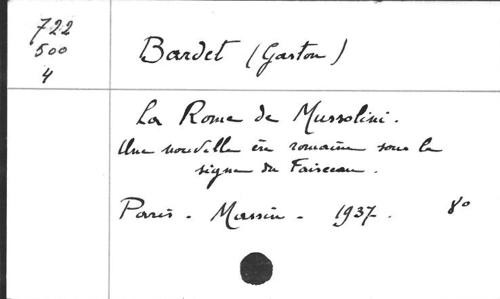 722
500
4
Bardet (Gaston)
La Rome de Mussolini.
Une nouvelle ère romaine sous le
signe du Faisceau.
Paris - Massin - 1937. 8°